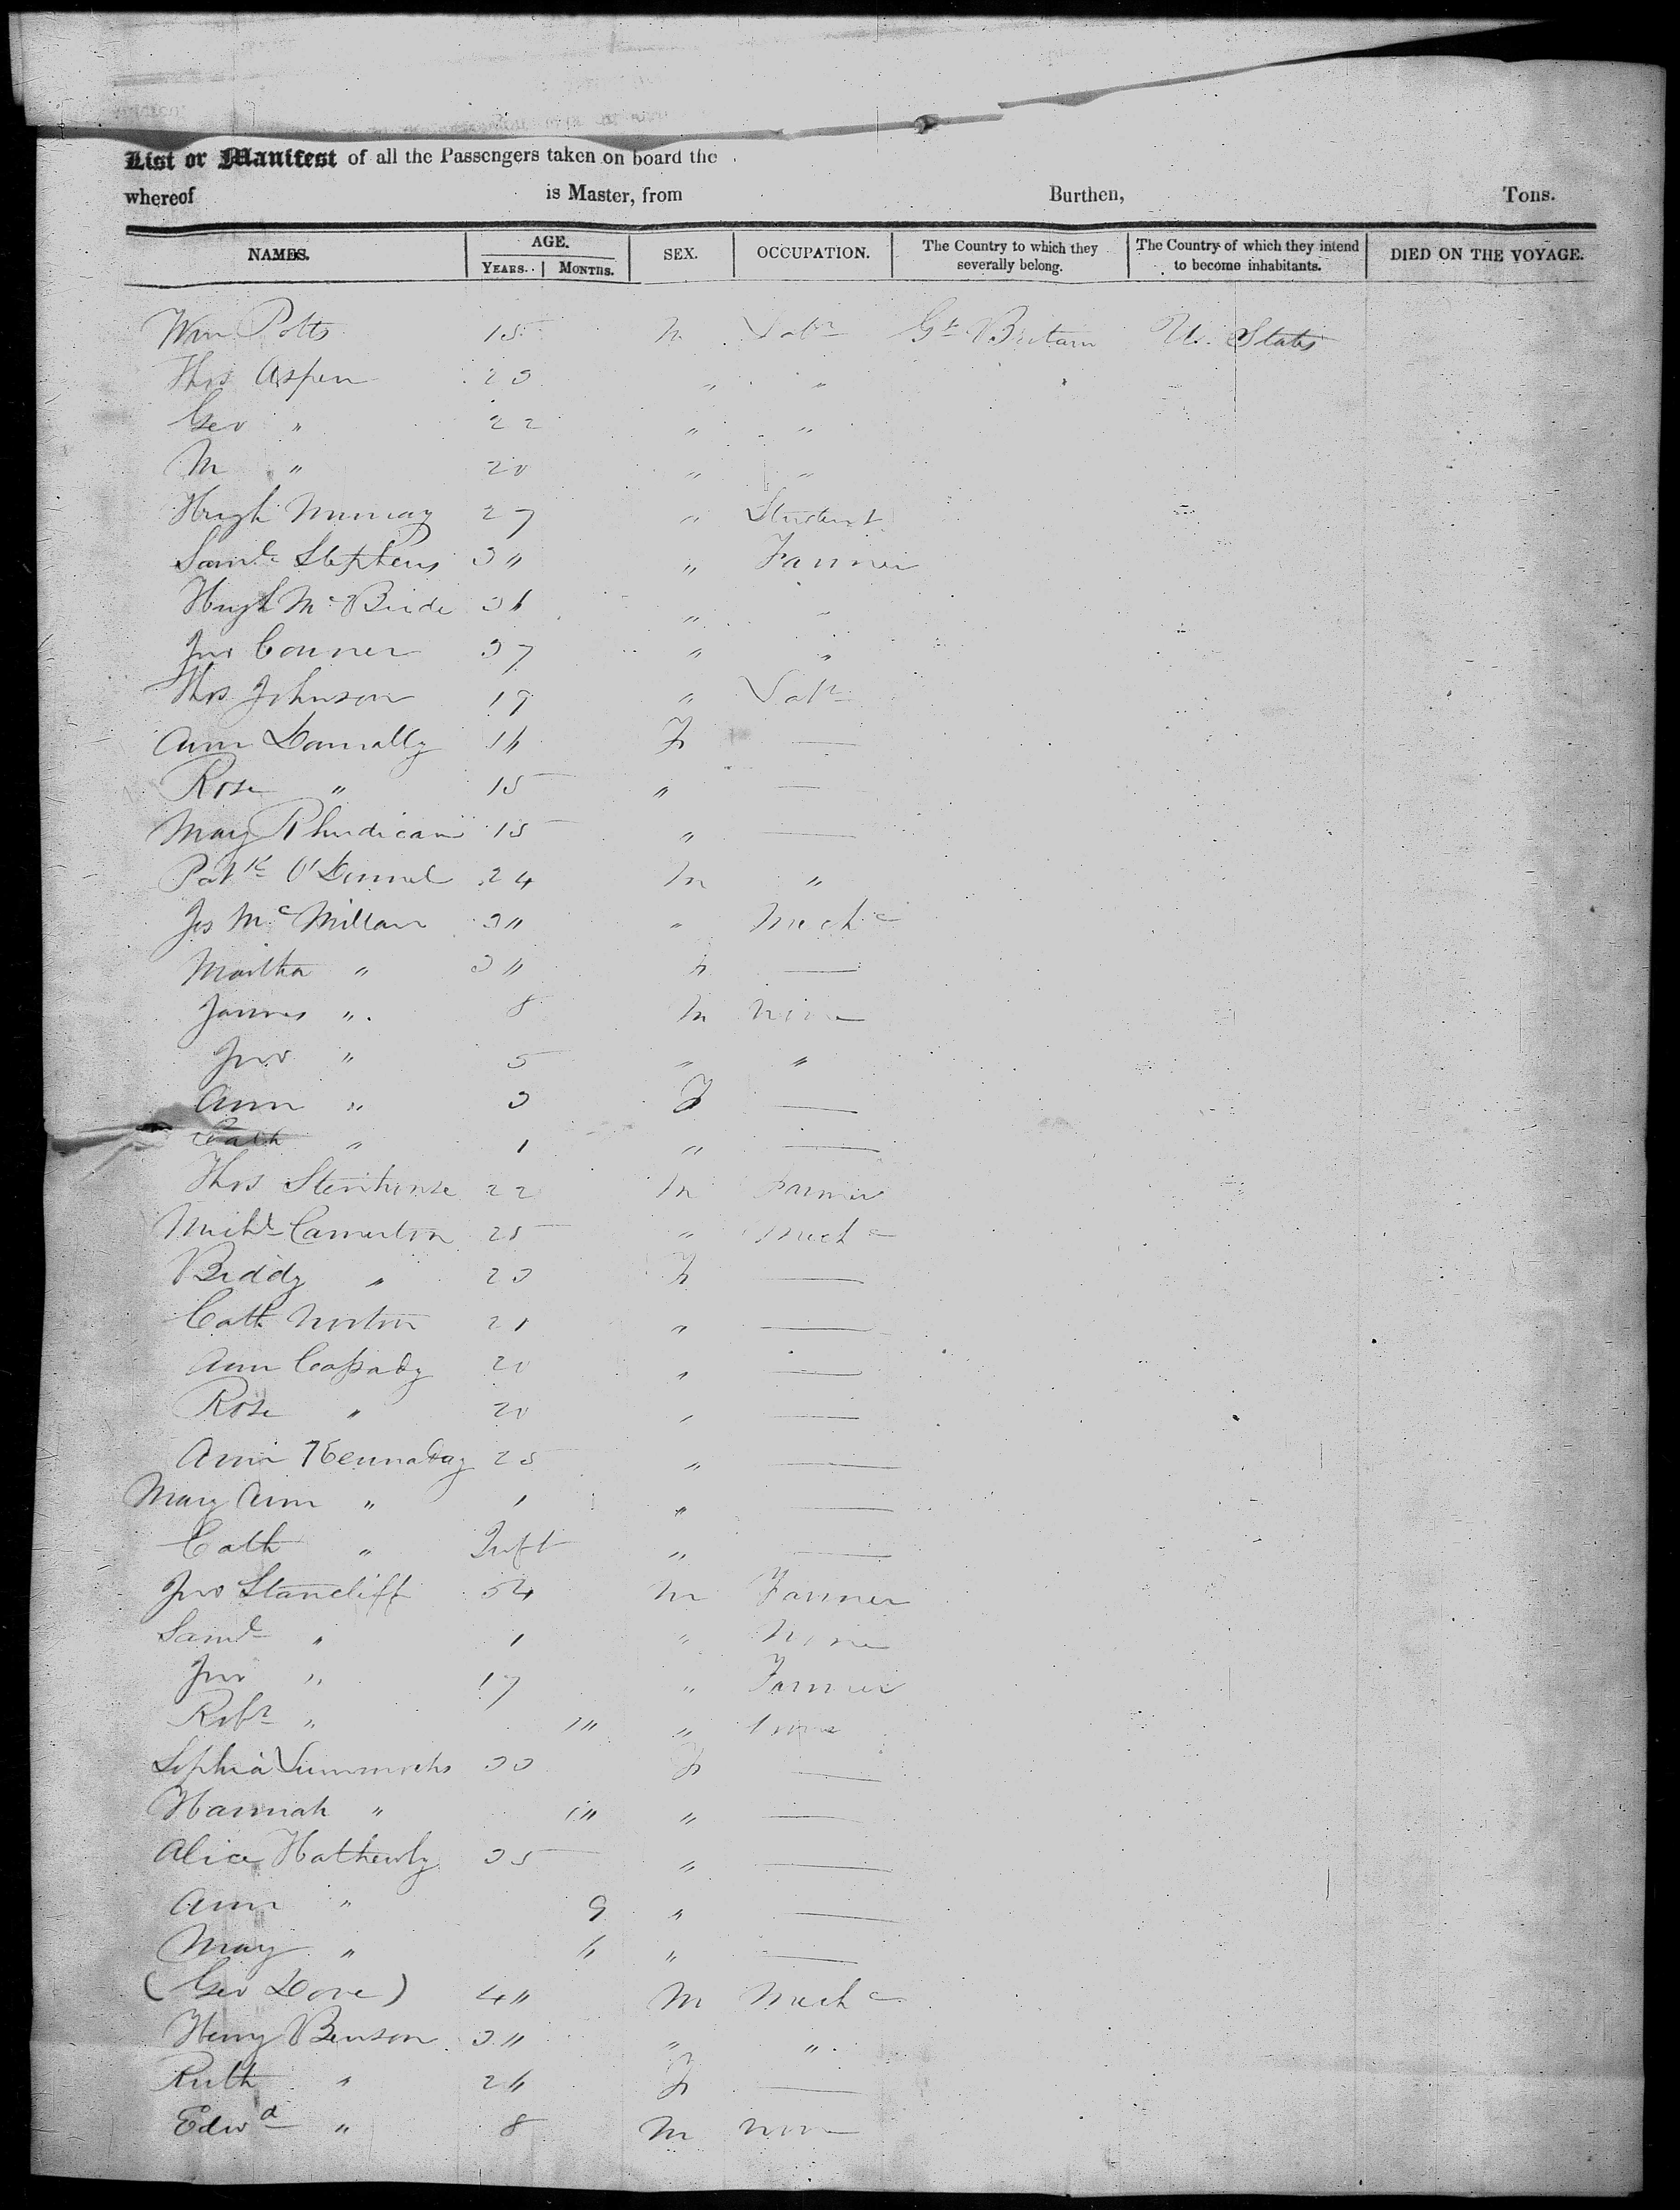 List or Manifest of all the Passengers taken on board the
whereof is Master, from Burthen, Tons.
NAMES. AGE. SEX. OCCUPATION. The Country to which they severally belong. The Country of which they intend to become inhabitants. DIED ON THE VOYAGE.
YEARS. MONTHS.
Wm Potts 15 M Labr Gt Britain U. States
Thos Aspen 23 " "
Geo " 22 " "
M " 20 " "
Hugh Murray 27 " Student
Saml Stephens 30 " Farmer
Hugh McBride 36 " "
Jno Conner 37 " "
Thos Johnson 19 " Labr
Ann Donnally 16 F —
Rose " 15 " —
Mary 15 " —
Patk O'Donnel 24 M "
Jas McMillan 30 " Mechc
Martha " 30 F —
James " 8 M None
Jno " 5 " "
Ann " 3 F —
Cath " 1 " —
Thos Stenhouse 22 M Farmer
Michl 25 " Mechc
Biddy " 23 F —
Cath Norton 21 " —
Ann Cassady 20 " —
Rose " 20 " —
Ann Kennaday 25 " —
Mary Ann " 1 " —
Cath " Inft " —
Jno Stancliff 54 M Farmer
Saml " 1 " None
Jno " 17 " Farmer
Robt " 10 " None
Sophia 33 F —
Hannah " 10 " —
Alice 35 " —
Ann " 9 " —
Mary " 6 " —
(Geo Dove) 40 M Mechc
Henry Benson 30 " "
Ruth " 26 F —
Edwd " 8 M None